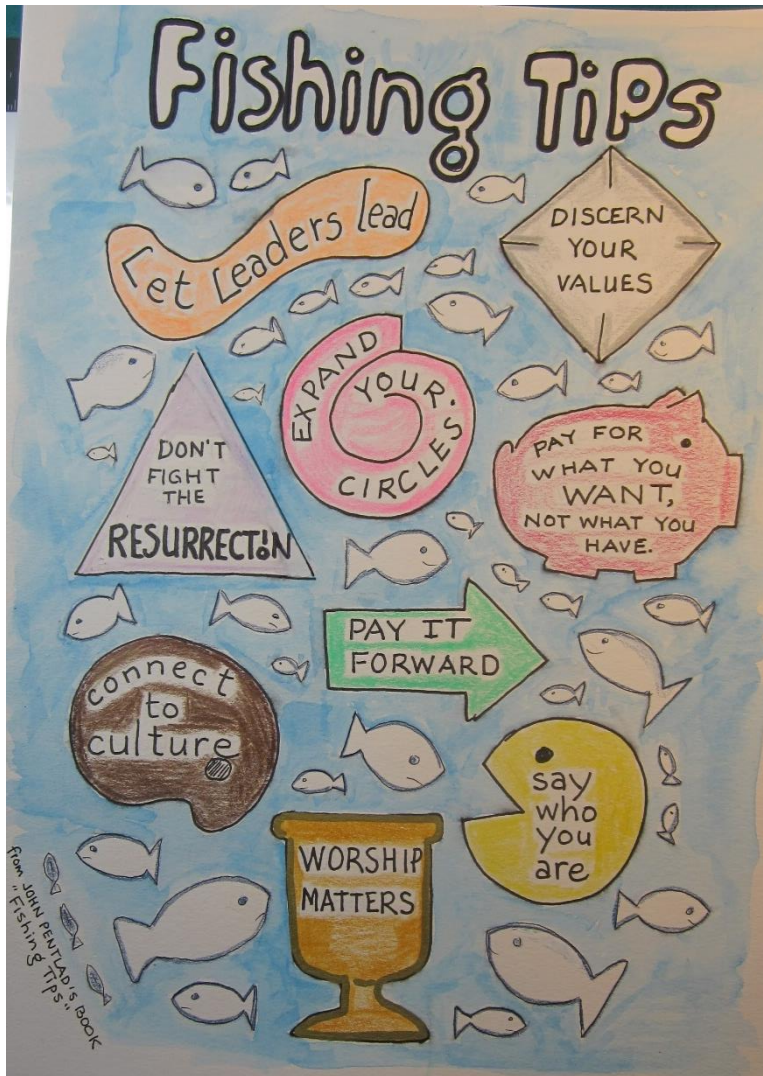 Fishing Tips
Let Leaders lead
DISCERN
YOUR
VALUES
EXPAND
YOUR
CIRCLES
DON'T
FIGHT
THE
RESURRECT!ON
PAY FOR
WHAT YOU
WANT,
NOT WHAT YOU
HAVE.
PAY IT
FORWARD
connect
to
culture
say
who
you
are
WORSHIP
MATTERS
from JOHN PENTLAD'S BOOK
"Fishing Tips"